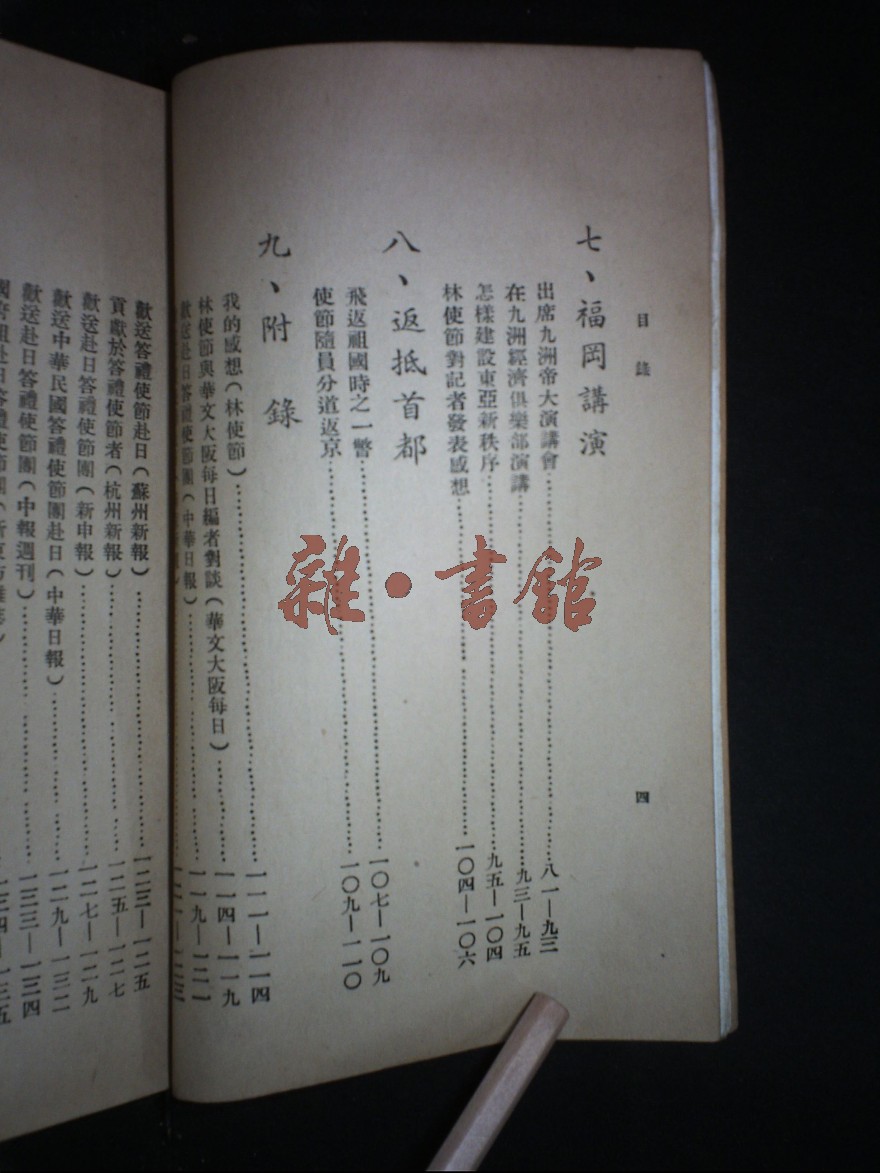 目錄
四
七、福岡講演
出席九洲帝大演講會……八一—九三
在九洲經濟俱樂部演講……九三—九五
怎樣建設東亞新秩序……九五—一〇四
林使節對記者發表感想……一〇四—一〇六
八、返抵首都
飛返祖國時之一瞥……一〇七—一〇九
使節隨員分道返京……一〇九—一一〇
九、附錄
我的感想(林使節)……一一一—一一四
林使節與華文大阪每日編者對談(華文大阪每日)……一一四—一一九
歡送赴日答禮使節團(中華日報)……一一九—一二一
一二一—一二三
歡送答禮使節赴日(蘇州新報)……一二三—一二五
貢獻於答禮使節者(杭州新報)……一二五—一二七
歡送赴日答禮使節團(新申報)……一二七—一二九
歡送中華民國答禮使節團赴日(中華日報)……一二九—一三二
歡送赴日答禮使節團(中報週刊)……一三三—一三四
赴日答禮使節團……一三四—一三五
雜·書館